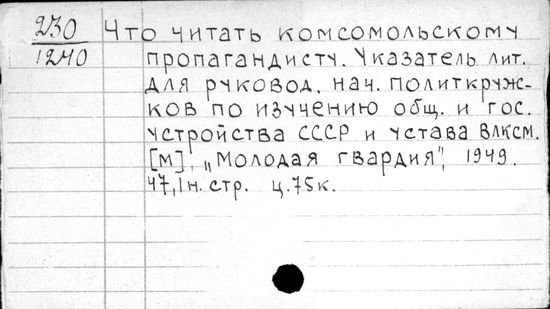 230 Что читать комсомольскому
1240 пропагандисту. Указатель лит.
для руковод. нач. политкруж-
ков по изучению общ. и гос.
устройства СССР и устава ВЛКСМ.
[М], „Молодая гвардия", 1949.
47,1н. стр. ц.75к.